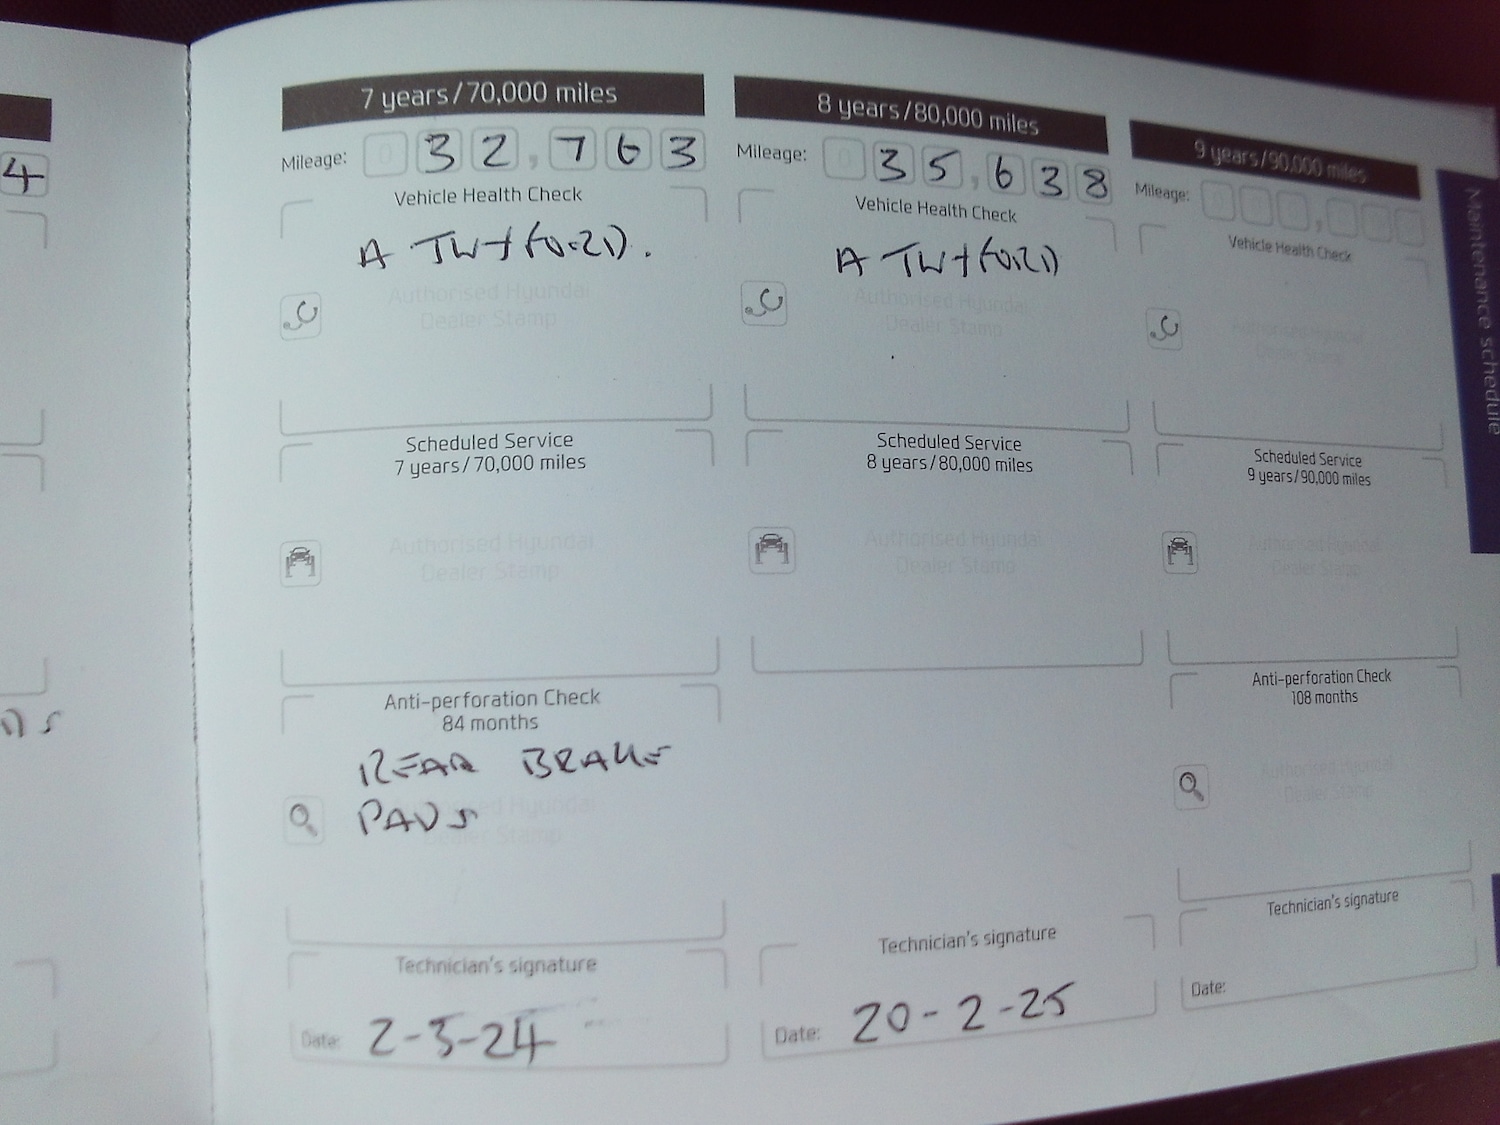 4
7 years/70,000 miles
Mileage: 0 32,763
Vehicle Health Check
Authorised Hyundai
Dealer Stamp
Scheduled Service
7 years/70,000 miles
Authorised Hyundai
Dealer Stamp
Anti-perforation Check
84 months
REAR BRAKE
PADS
Technician's signature
Date: 2-3-24
8 years/80,000 miles
Mileage: 0 35,638
Vehicle Health Check
Authorised Hyundai
Dealer Stamp
Scheduled Service
8 years/80,000 miles
Authorised Hyundai
Dealer Stamp
Technician's signature
Date: 20-2-25
9 years/90,000 miles
Mileage:
Vehicle Health Check
Authorised Hyundai
Dealer Stamp
Scheduled Service
9 years/90,000 miles
Authorised Hyundai
Dealer Stamp
Anti-perforation Check
108 months
Authorised Hyundai
Dealer Stamp
Technician's signature
Date:
Maintenance schedule